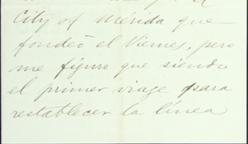 City of Mérida que
fondeó el Viernes, pero
me figuro que siendo
el primer viage para
restablecer la línea